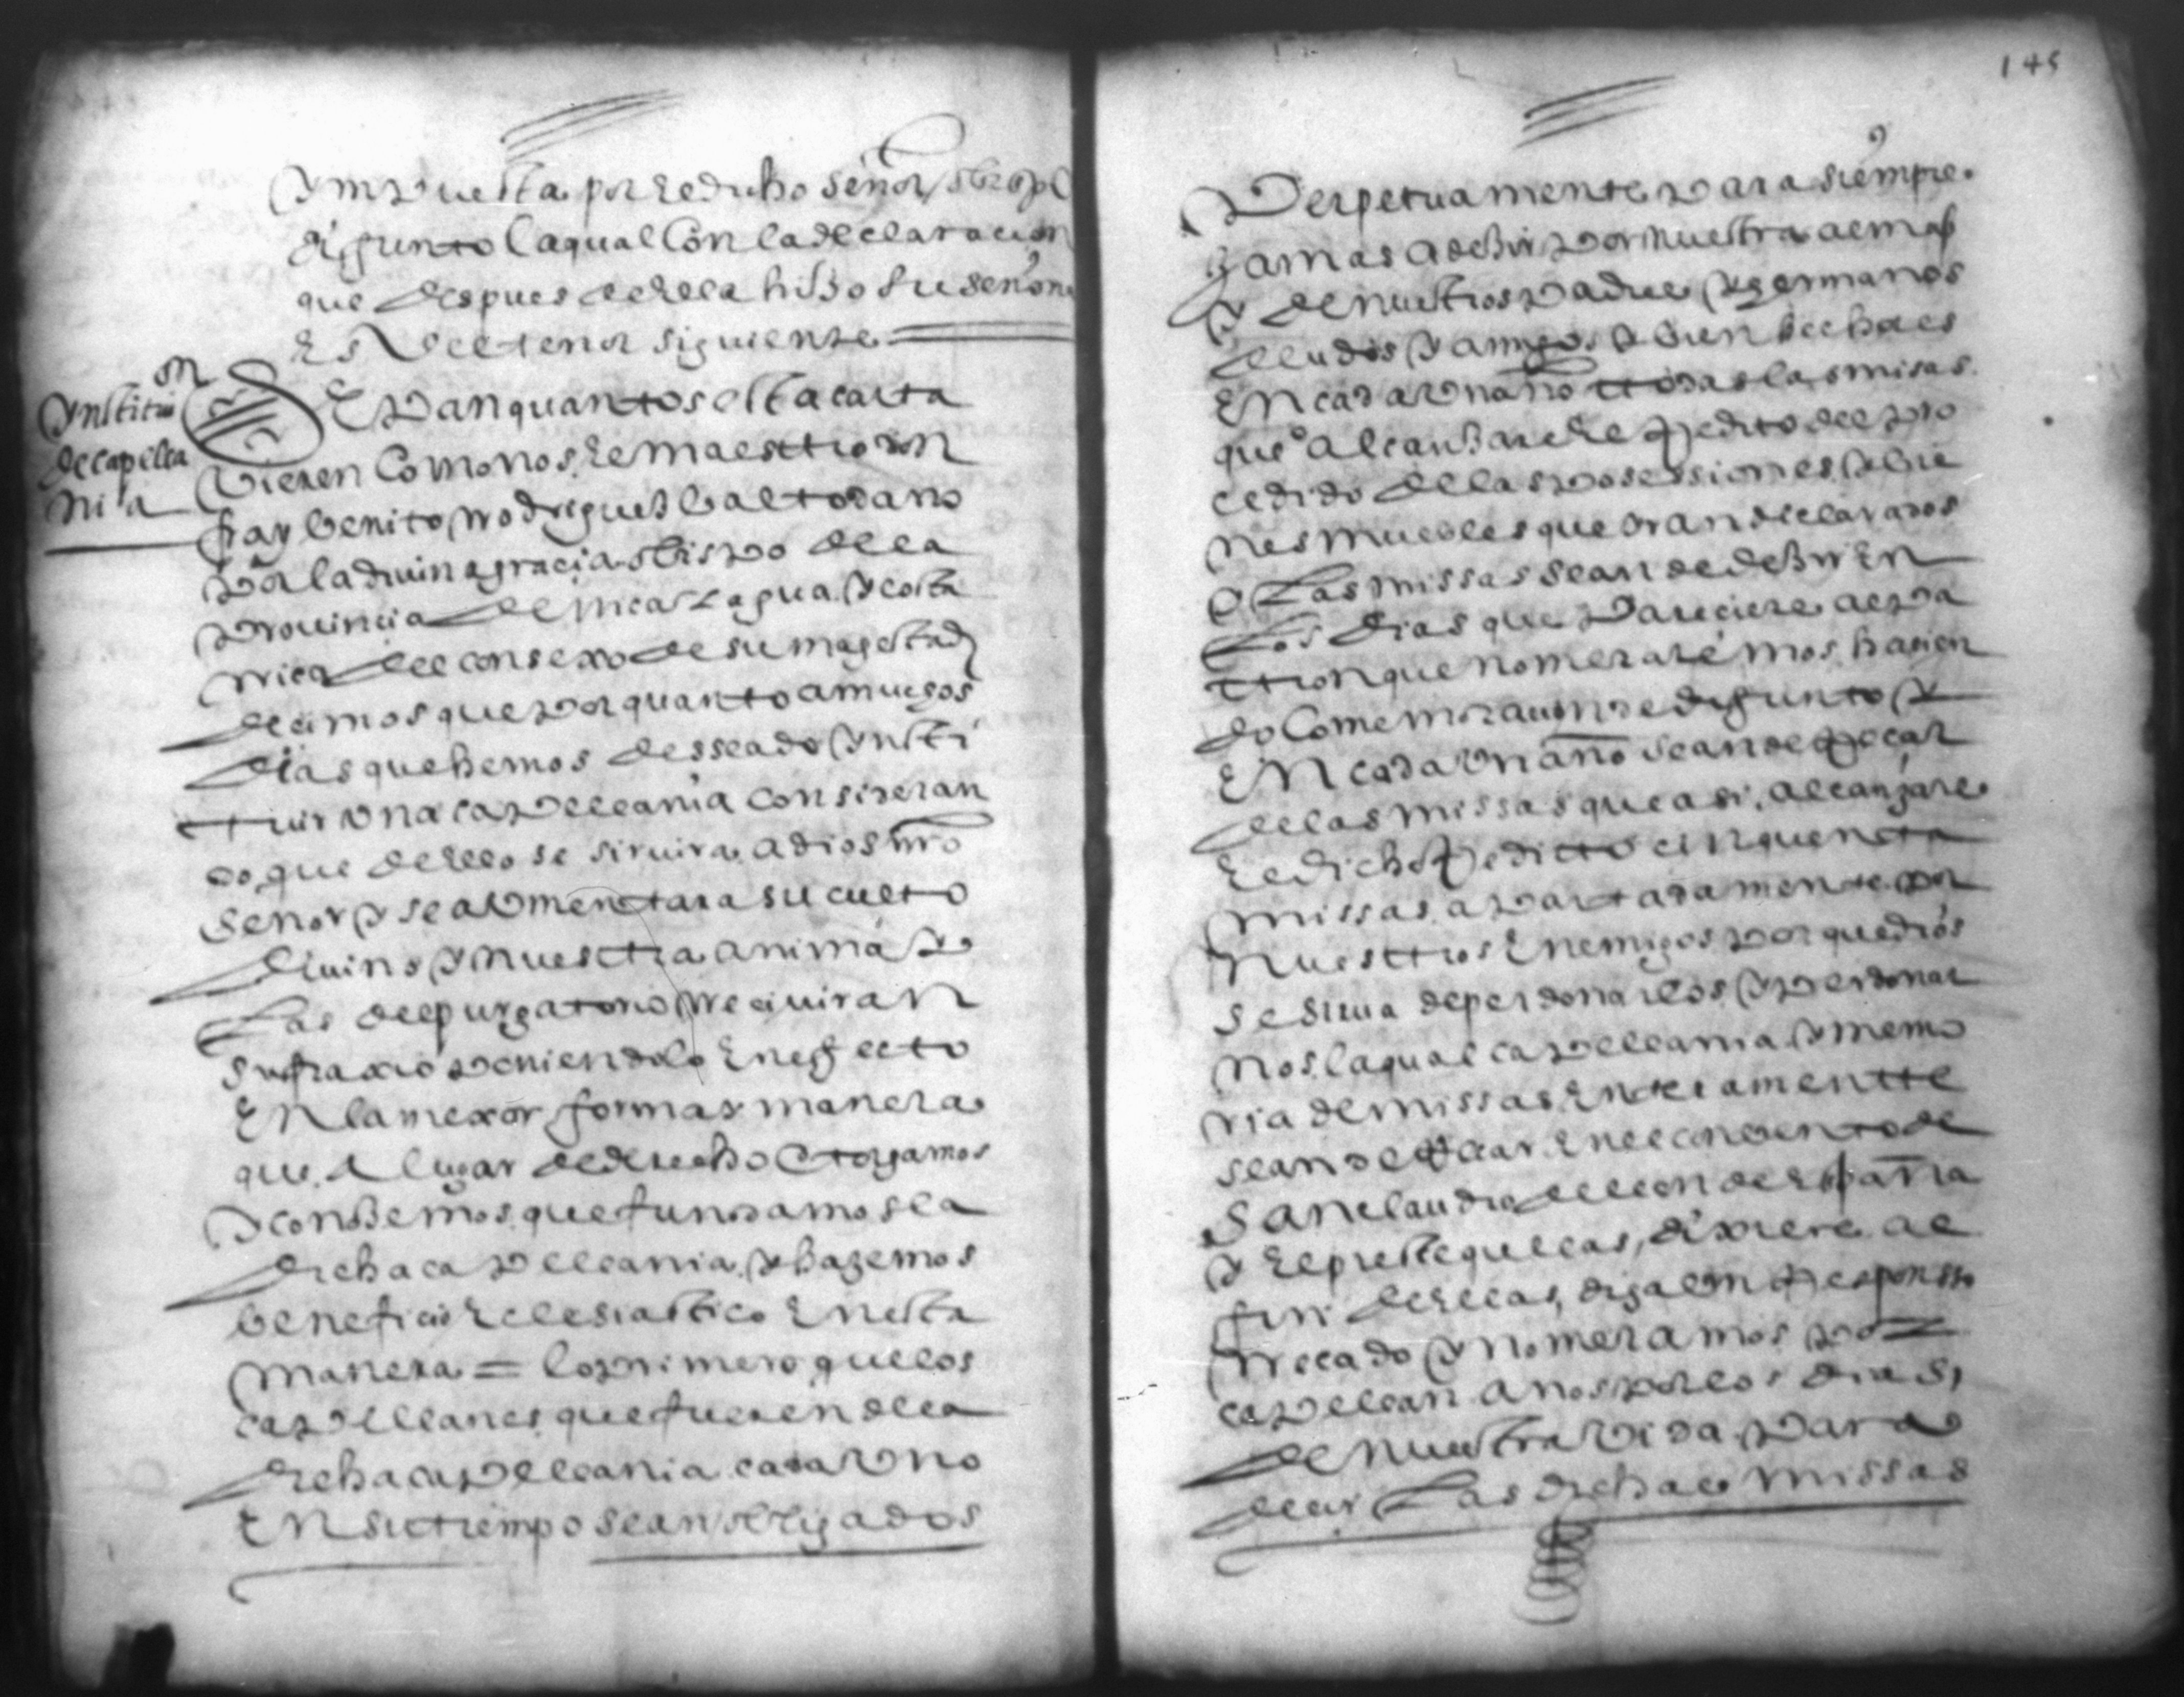 Ynpuesta por el dicho señor obispo
difunto la qual con la declaracion
que despues de ella hisso su señoria
Es del tenor siguiente
Ynstitu
on
de capella
nia
Sepan quantos esta carta
vieren Como nos el maestro don
fray benito rrodriguez baltodano
por la divina gracia obispo de la
provincia de nicaragua y costa
rrica del consexo de su magestad
decimos que por quanto a muchos
dias que hemos desseado ynsti
ttuir una capellania consideran
do que de ello se siruira a dios nro
señor y se aumenctara su culto
divino y nuesctra anima y
las del purgatorio rreciuiran
sufraxio poniendolo En efecto
En la mexor forma y manera
que a lugar de derecho otorgamos
y conosemos que fundamos la
dicha capellania y hazemos
beneficio Eclesiastico En esta
manera = lo primero que los
capellanes que fueren de la
dicha capellania cada uno
En su tiempo sean obligados
145
Perpetuamente para siempre
jamas a desir por nuestra alma
y de nuestros padres y hermanos
deudos y amigos y bien hechores
En cada un año ttodas las misas
que alcansare el rredito del pro
cedido de las posessiones y bie
nes muebles que yran declarados
Las missas se an de desir En
Los dias que pareciere al pa
ttron que nomeraremos hasien
do Comemoracion de difunto y
En cada un año se an de rrecar
de las missas que asi alcanzare
el dicho rredicto cinquencta
missas apartadamente por
nuesttros Enemigos porque dios
se sirua de perdonarlos y perdonar
nos la qual capellania y memo
ria de missas Enteramentte
se an de decir En el convento de
San claudio de leon de España
y El preste que las dixere al
fin de ellas diga un rresponsso
rrecado y nomeramos por
capellan a nos por los dias
de nuestra vida para
decir Las dichas missas